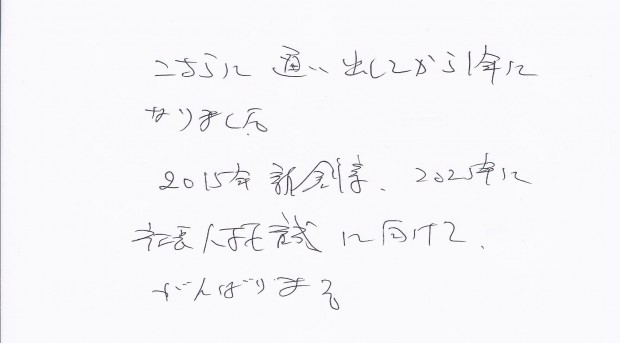 こちらに通い出してから1年に
なりました
2015年新創、2025年に
に向けて、
がんばります